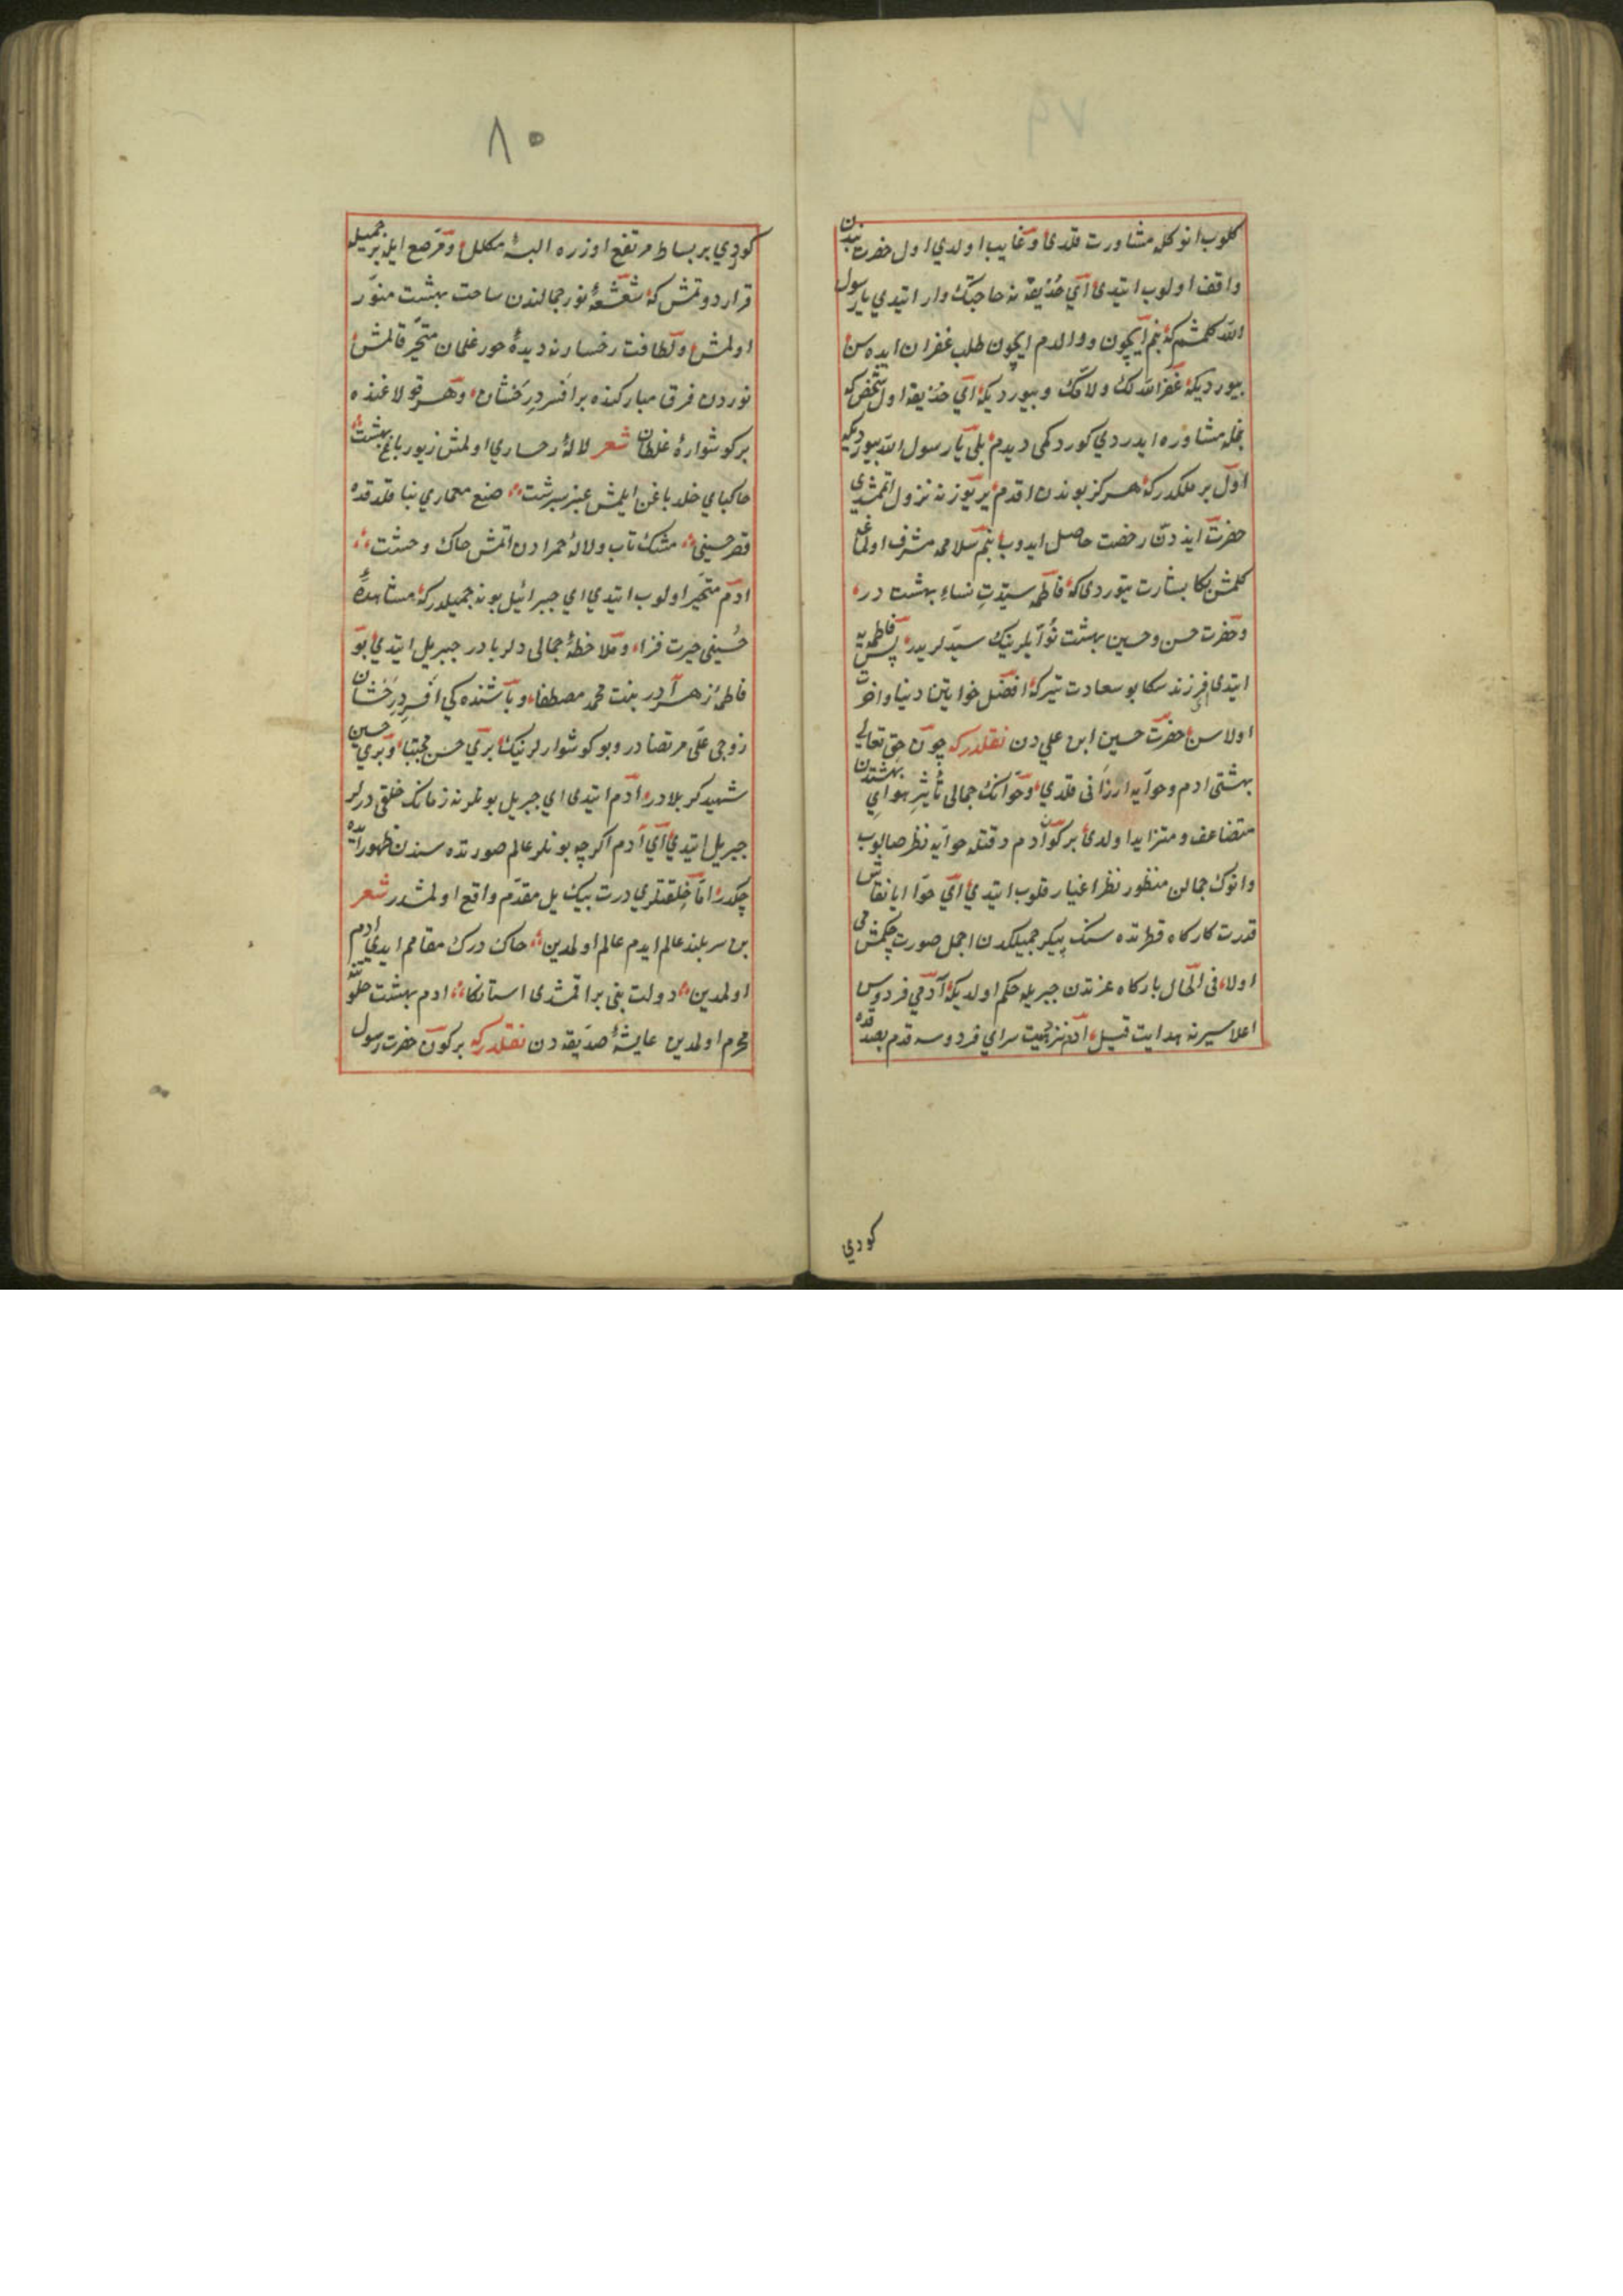 ٧٩
كلوب انوكله مشاورت قلدى وغايب اولدي اول حضرت بندن
واقف اولوب ايتدى اي حذيفه نه حاجتك وار ايتدي يا رسول
الله كلمشم كه بنم ايچون ووالدم ايچون طلب غفران ايده سن
بيورديكه غفر الله لك ولامك وبيورديكه اي حذيفه اول شخص كه
بنمله مشاوره ايدردي كوردكمى ديدم بلى يا رسول الله بيورديكه
اول بر ملكدر كه هركز بوندن اقدم ير يوزنه نزول اتمشدى
حضرت ايذددن رخصت حاصل ايدوب بنم سلاممه مشرف اولمغه
كلمش بكا بشارت يتوردى كه فاطمه سيدت نساء بهشت در
وحضرت حسن وحسين بهشت يكيتلرينك سيدلريدر پس فاطمه يه
ايتدى فرزند سكا بو سعادت يتركه افضل خواتين دنيا واخرت
اولاسن حضرت حسين ابن علي دن نقلدركه چون حق تعالى
بهشتى ادم وحوايه ارزانى قلدي وحوانك جمالى تأثير هواي بهشتدن
متضاعف ومتزايد اولدى بر كون آدم دقتله حوايه نظر صالوب
وانوك جمالن منظور نظر اعتبار قلوب ايتدي اي حوا ايا نقاش
قدرت كاركاه فطرتده سنك پيكر جميلكدن اجمل صورت چكمش مى
اولا فى الحال باركاه عزتدن جبريله حكم اولديكه آدمي فردوس
اعلا سيرنه هدايت قيل ادم نزهت سراي فردوسه قدم بصدقده
كوردي
٨٠
كوردي بر بساط مرتفع اوزره البسۀ مكلل ومرصع ايله بر جميله
قرار دوتمش كه شعشعۀ نور جمالندن ساحت بهشت منور
اولمش ولطافت رخسارنه ديدۀ حور غلمان متحير قالمش
نوردن فرق مباركنده بر افسر درخشان وهر قولاغنده
بر كوشوارۀ غلطان شعر لالۀ رخساري اولمش زيور باغ بهشت
خاكپاي خلد باغن ايلمش عنبر سرشت صنع معماري بنا قلدقده
قصر حسينى مشك ناب ولالۀ حمرادن اتمش خاك وخشت
ادم متحير اولوب ايتدي اي جبرائيل بو نه جميلدركه مشاهدۀ
حسينى حيرت فزا وملاحظۀ جمالى دلربادر جبريل ايتدي بو
فاطمۀ زهرادر بنت محمد مصطفا وباشنده كى افسر درخشان
زوجى على مرتضادر وبو كوشوارلرينك بري حسن مجتبا وبري حسين
شهيد كربلادر ادم ايتدى اي جبريل بونلر نه زمانك خلقى درلر
جبريل ايتدي اي آدم اكرچه بونلر عالم صورتده سندن ظهور ايده
جكدر اما خلقتلري درت بيك يل مقدم واقع اولمشدر شعر
بن سربلند عالم ايدم عالم اولمدين خاك درك مقامم ايدي ادم
اولمدين دولت بنى براقمشدى استانكا ادم بهشت خلوتنه
محرم اولمدين عايشۀ صديقه دن نقلدركه بر كون حضرت رسول